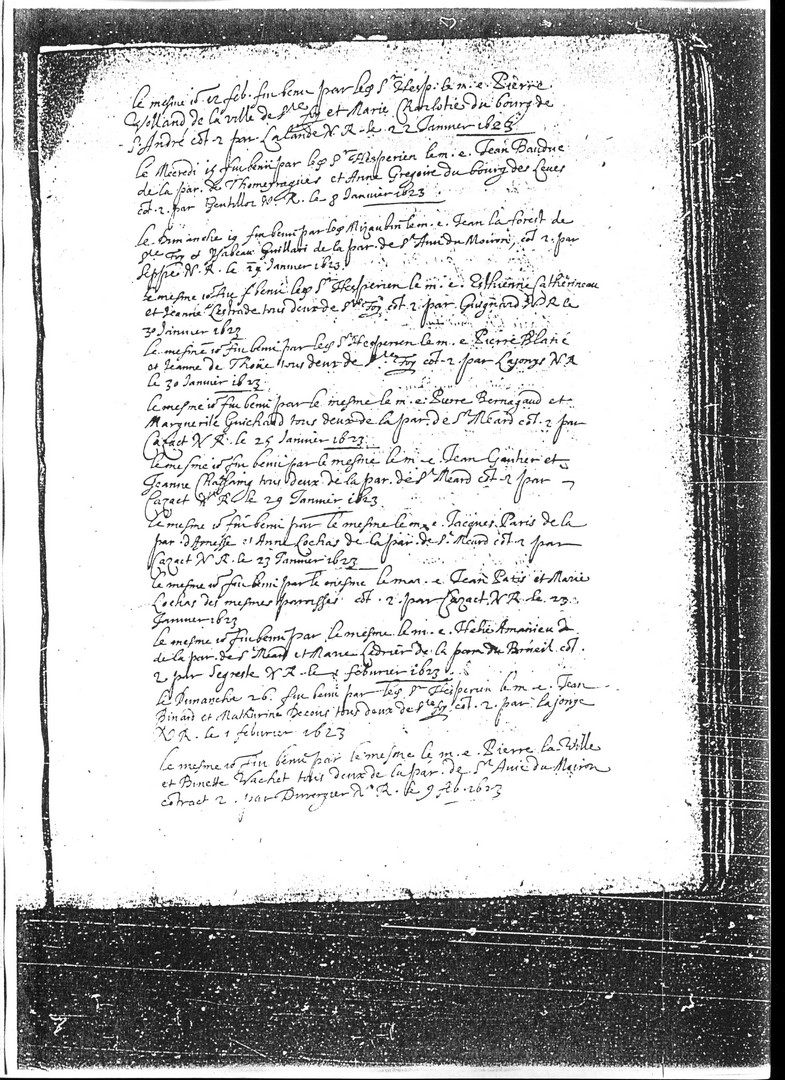 le mesme io 12 feb. fut beni par led Sr Hesp. le m. e. Pierre
Volland de la ville de Ste foy et Marie Charlotie du bourg de
St André cot. 2 par Lalande N R. le 22 Janvier 1623
le Mecredi 15 fut beni par led Sr Hesperien le m. e. Jean Baudue
de la par. de Thomeyragues et Anne Gregoire du bourg des Leves
cot. 2. par Gentillot N. R. le 8 Janvier 1623
le Dimanche 19 fut beni par led Mizaubin le m. e. Jean la forest de
Ste Foy et Ysabeau Guillari de la par. de St Avit du Moiron, cot 2. par
N. R. le 29 Janvier 1623
le mesme io fut beni led Sr Hesperien le m. e. Esthienne Catherineau
et Jeanne Lestrade tous deux de Ste Foy cot. 2 par Guignard N R le
30 Janvier 1623
le mesme io fut beni par led Sr Hesperien le m. e. Pierre Blatié
et Jeanne de Thone tous deux de Ste Foy cot. 2 par Lajonye N R
le 30 Janvier 1623
le mesme io fut beni par le mesme le m. e. Pierre Bernagaud et
Marguerite Guichard tous deux de la par. de St Meard cot. 2 par
Cazact N R. le 25 Janvier 1623
le mesme io fut beni par le mesme le m. e. Jean Gautier et
Jeanne tous deux de la par. de St Meard cot. 2 par
Cazact N R. le 29 Janvier 1623
le mesme io fut beni par le mesme le m. e. Jacques Paris de la
par. d'Arnesse et Anne Lochas de la par. de St Meard cot. 2 par
Cazact N R. le 23 Janvier 1623
le mesme io fut beni par le mesme le mar. e. Jean Paris et Marie
Lochas des mesmes parroisses cot. 2 par Cazact N R. le 23
Janvier 1623
le mesme io fut beni par le mesme le m. e. Helie Amanieu
de la par. de St Meard et Marie Ledrier de la parr. du Borneil cot.
2 par Segreste N. R. le febvrier 1623
le Dimanche 26. fut beni par led Sr Hesperien le m. e. Jean
Binard et Mathurine Decous tous deux de Ste foy cot. 2. par lajonye
N R. le 1 febvrier 1623
le mesme io fut beni par le mesme le m. e. Pierre la Ville
et Binette Vachet tous deux de la par. de St Avit du Moiron
cotract 2. par Duvergier N. R. le 9 feb. 1623